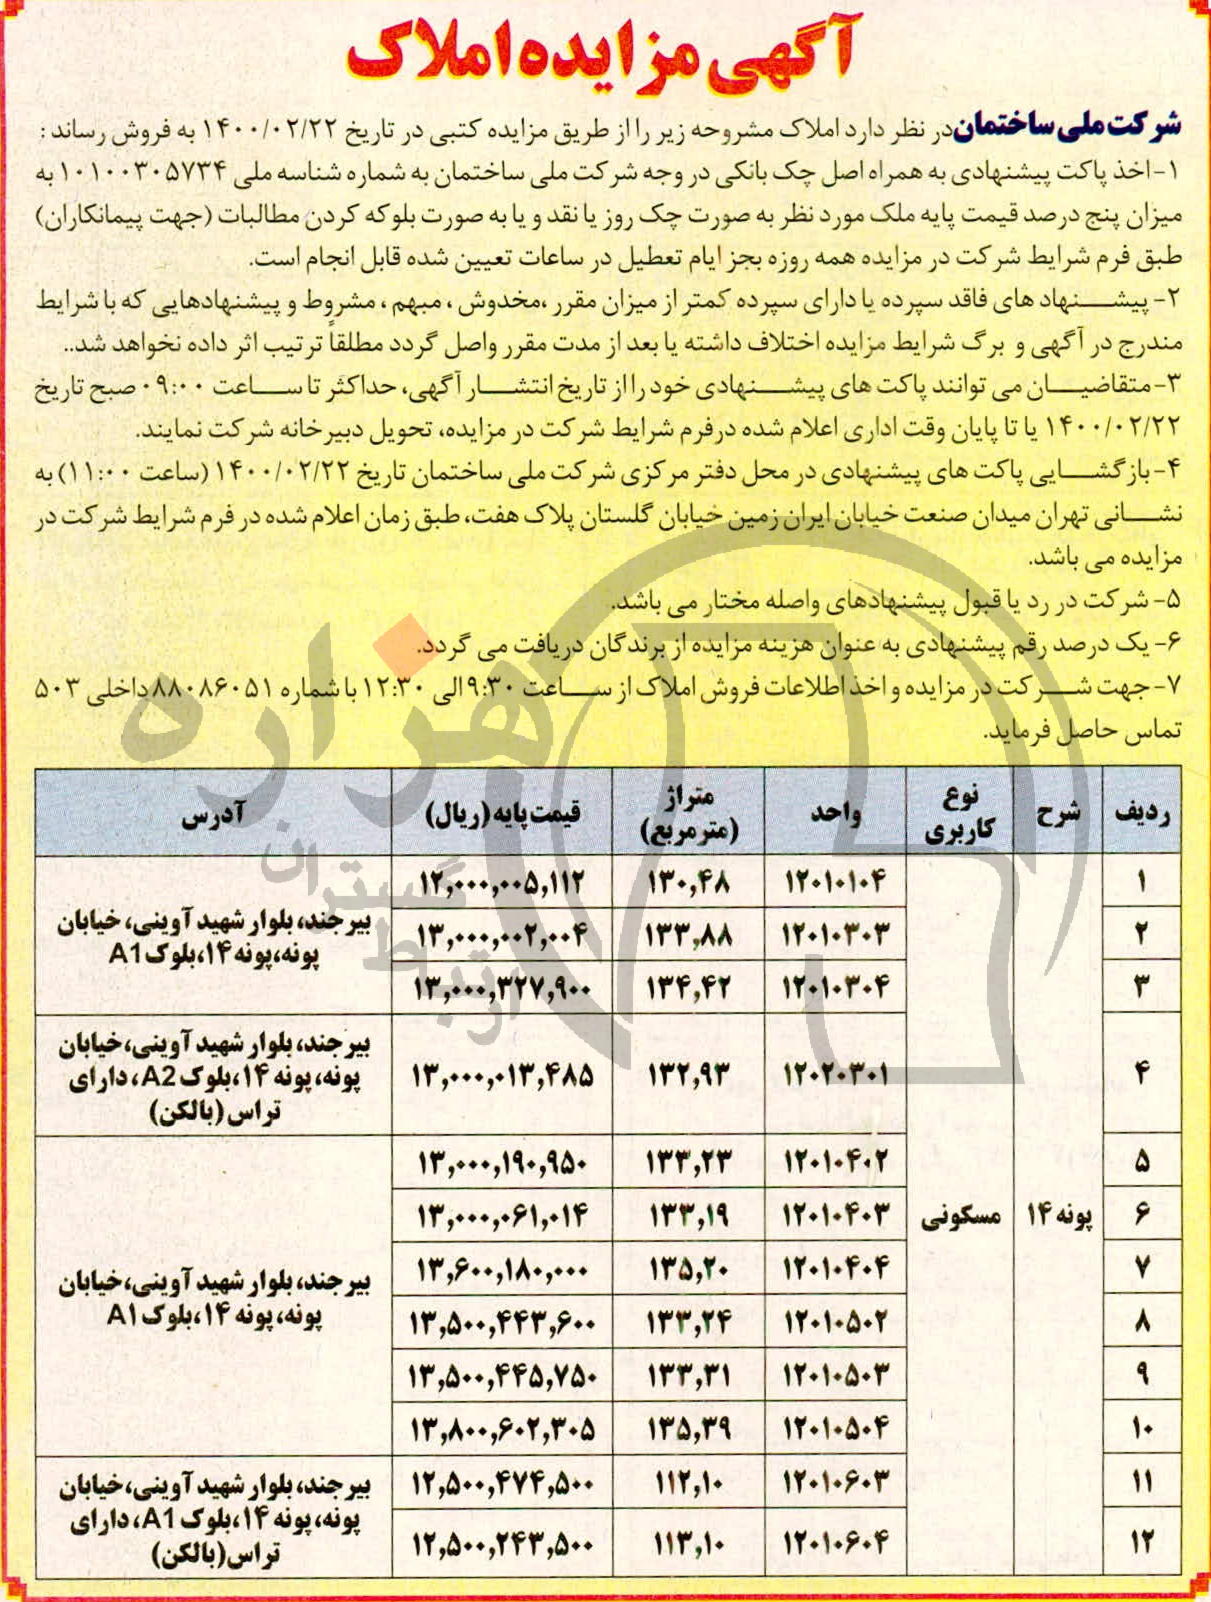 آگهی مزایده املاک
شرکت ملی ساختمان در نظر دارد املاک مشروحه زیر را از طریق مزایده کتبی در تاریخ ۱۴۰۰/۰۲/۲۲ به فروش رساند :
۱- اخذ پاکت پیشنهادی به همراه اصل چک بانکی در وجه شرکت ملی ساختمان به شماره شناسه ملی ۱۰۱۰۰۳۰۵۷۳۴ به
میزان پنج درصد قیمت پایه ملک مورد نظر به صورت چک روز یا نقد و یا به صورت بلوکه کردن مطالبات (جهت پیمانکاران)
طبق فرم شرایط شرکت در مزایده همه روزه بجز ایام تعطیل در ساعات تعیین شده قابل انجام است.
۲- پیشنهاد های فاقد سپرده یا دارای سپرده کمتر از میزان مقرر ،مخدوش ، مبهم ، مشروط و پیشنهادهایی که با شرایط
مندرج در آگهی و برگ شرایط مزایده اختلاف داشته یا بعد از مدت مقرر واصل گردد مطلقاً ترتیب اثر داده نخواهد شد..
۳- متقاضیان می توانند پاکت های پیشنهادی خود را از تاریخ انتشار آگهی، حداکثر تا ساعت ۰۹:۰۰ صبح تاریخ
۱۴۰۰/۰۲/۲۲ یا تا پایان وقت اداری اعلام شده درفرم شرایط شرکت در مزایده، تحویل دبیرخانه شرکت نمایند.
۴- بازگشایی پاکت های پیشنهادی در محل دفتر مرکزی شرکت ملی ساختمان تاریخ ۱۴۰۰/۰۲/۲۲ (ساعت ۱۱:۰۰) به
نشانی تهران میدان صنعت خیابان ایران زمین خیابان گلستان پلاک هفت، طبق زمان اعلام شده در فرم شرایط شرکت در
مزایده می باشد.
۵- شرکت در رد یا قبول پیشنهادهای واصله مختار می باشد.
۶- یک درصد رقم پیشنهادی به عنوان هزینه مزایده از برندگان دریافت می گردد.
۷- جهت شرکت در مزایده و اخذ اطلاعات فروش املاک از ساعت ۹:۳۰ الی ۱۲:۳۰ با شماره ۸۸۰۸۶۰۵۱ داخلی ۵۰۳
تماس حاصل فرماید.
ردیف شرح نوع کاربری واحد متراژ (مترمربع) قیمت پایه (ریال) آدرس
۱ ۱۲۰۱۰۱۰۴ ۱۳۰,۴۸ ۱۲,۰۰۰,۰۰۵,۱۱۲
۲ ۱۲۰۱۰۳۰۳ ۱۳۳,۸۸ ۱۳,۰۰۰,۰۰۲,۰۰۴
۳ ۱۲۰۱۰۳۰۴ ۱۳۴,۴۲ ۱۳,۰۰۰,۳۲۷,۹۰۰
بیرجند، بلوار شهید آوینی، خیابان
پونه،پونه ۱۴،بلوک A1
۴ ۱۲۰۲۰۳۰۱ ۱۳۲,۹۳ ۱۳,۰۰۰,۰۱۳,۴۸۵
بیرجند، بلوار شهید آوینی، خیابان
پونه،پونه ۱۴،بلوک A2، دارای
تراس (بالکن)
پونه ۱۴ مسکونی
۵ ۱۲۰۱۰۴۰۲ ۱۳۳,۲۳ ۱۳,۰۰۰,۱۹۰,۹۵۰
۶ ۱۲۰۱۰۴۰۳ ۱۳۳,۱۹ ۱۳,۰۰۰,۰۶۱,۰۱۴
۷ ۱۲۰۱۰۴۰۴ ۱۳۵,۲۰ ۱۳,۶۰۰,۱۸۰,۰۰۰
۸ ۱۲۰۱۰۵۰۲ ۱۳۳,۲۴ ۱۳,۵۰۰,۴۴۳,۶۰۰
۹ ۱۲۰۱۰۵۰۳ ۱۳۳,۳۱ ۱۳,۵۰۰,۴۴۵,۷۵۰
۱۰ ۱۲۰۱۰۵۰۴ ۱۳۵,۳۹ ۱۳,۸۰۰,۶۰۲,۳۰۵
بیرجند، بلوار شهید آوینی، خیابان
پونه،پونه ۱۴،بلوک A1
۱۱ ۱۲۰۱۰۶۰۳ ۱۱۲,۱۰ ۱۲,۵۰۰,۴۷۴,۵۰۰
۱۲ ۱۲۰۱۰۶۰۴ ۱۱۳,۱۰ ۱۲,۵۰۰,۲۴۳,۵۰۰
بیرجند، بلوار شهید آوینی، خیابان
پونه،پونه ۱۴،بلوک A1، دارای
تراس(بالکن)
هزاره
گستران
ارتباط